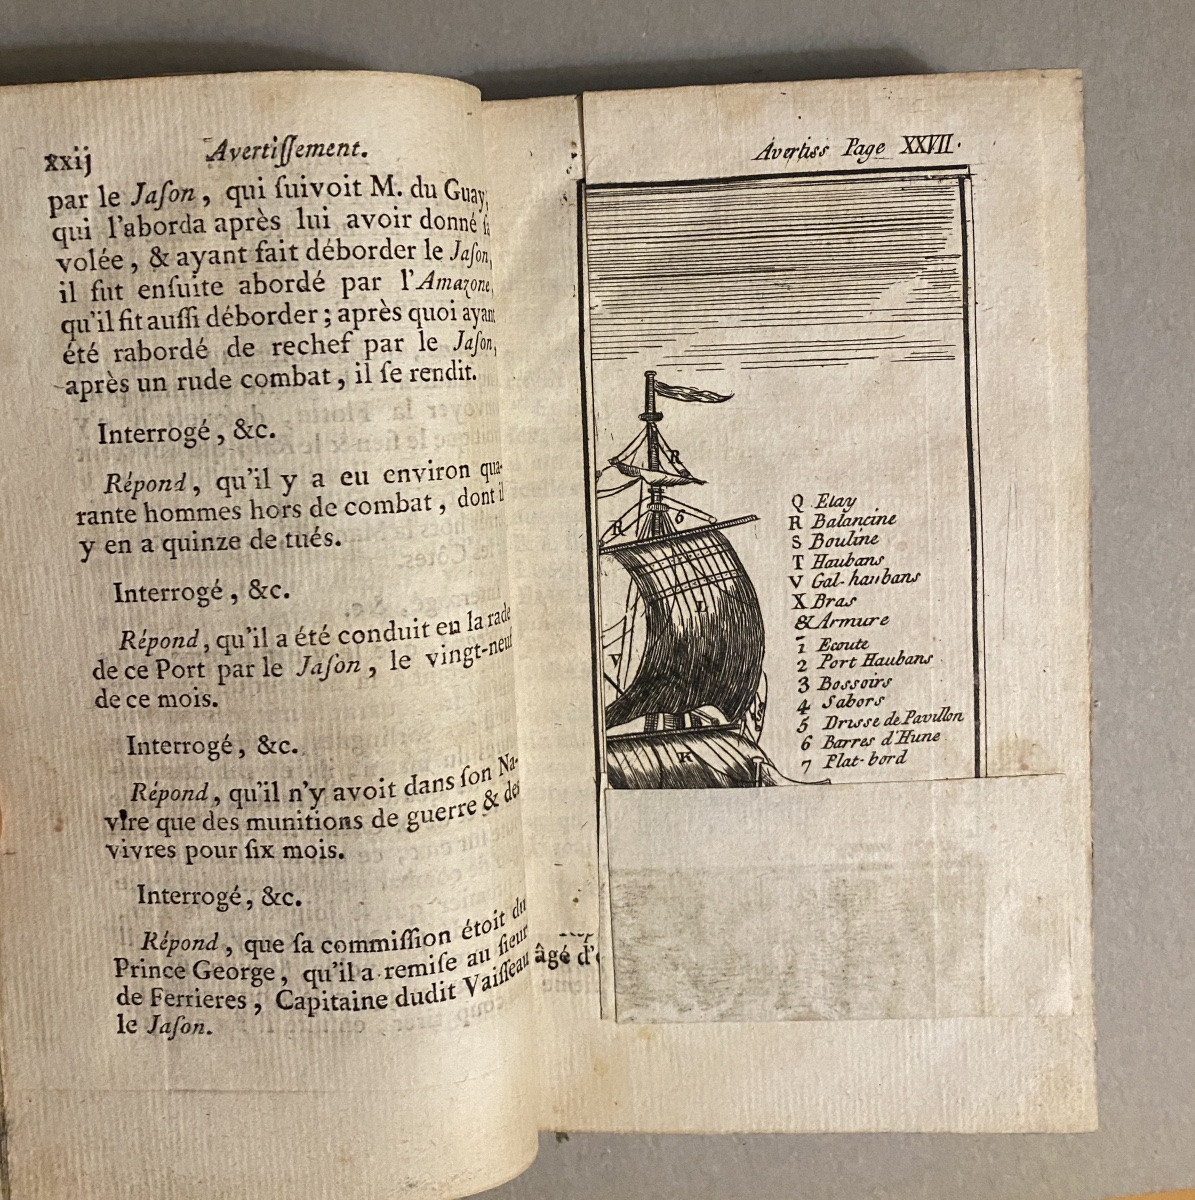 xxij Avertiſſement.
par le Jaſon, qui ſuivoit M. du Guay,
qui l'aborda après lui avoir donné ſa
volée, & ayant fait déborder le Jaſon,
il fut enſuite abordé par l'Amazone,
qu'il fit auſſi déborder; après quoi ayant
été rabordé de rechef par le Jaſon,
après un rude combat, il ſe rendit.
Interrogé, &c.
Répond, qu'il y a eu environ qua-
rante hommes hors de combat, dont il
y en a quinze de tués.
Interrogé, &c.
Répond, qu'il a été conduit en la rade
de ce Port par le Jaſon, le vingt-neuf
de ce mois.
Interrogé, &c.
Répond, qu'il n'y avoit dans ſon Na-
vire que des munitions de guerre & des
vivres pour ſix mois.
Interrogé, &c.
Répond, que ſa commiſſion étoit du
Prince George, qu'il a remiſe au ſieur
de Ferrieres, Capitaine dudit Vaiſſeau
le Jaſon.
âgé d'
Avertiss Page XXVII.
R
R 6
L
V
K
Q Etay
R Balancine
S Bouline
T Haubans
V Gal-haubans
X Bras
& Armure
1 Ecoute
2 Port Haubans
3 Bossoirs
4 Sabors
5 Drisse de Pavillon
6 Barres d'Hune
7 Plat-bord